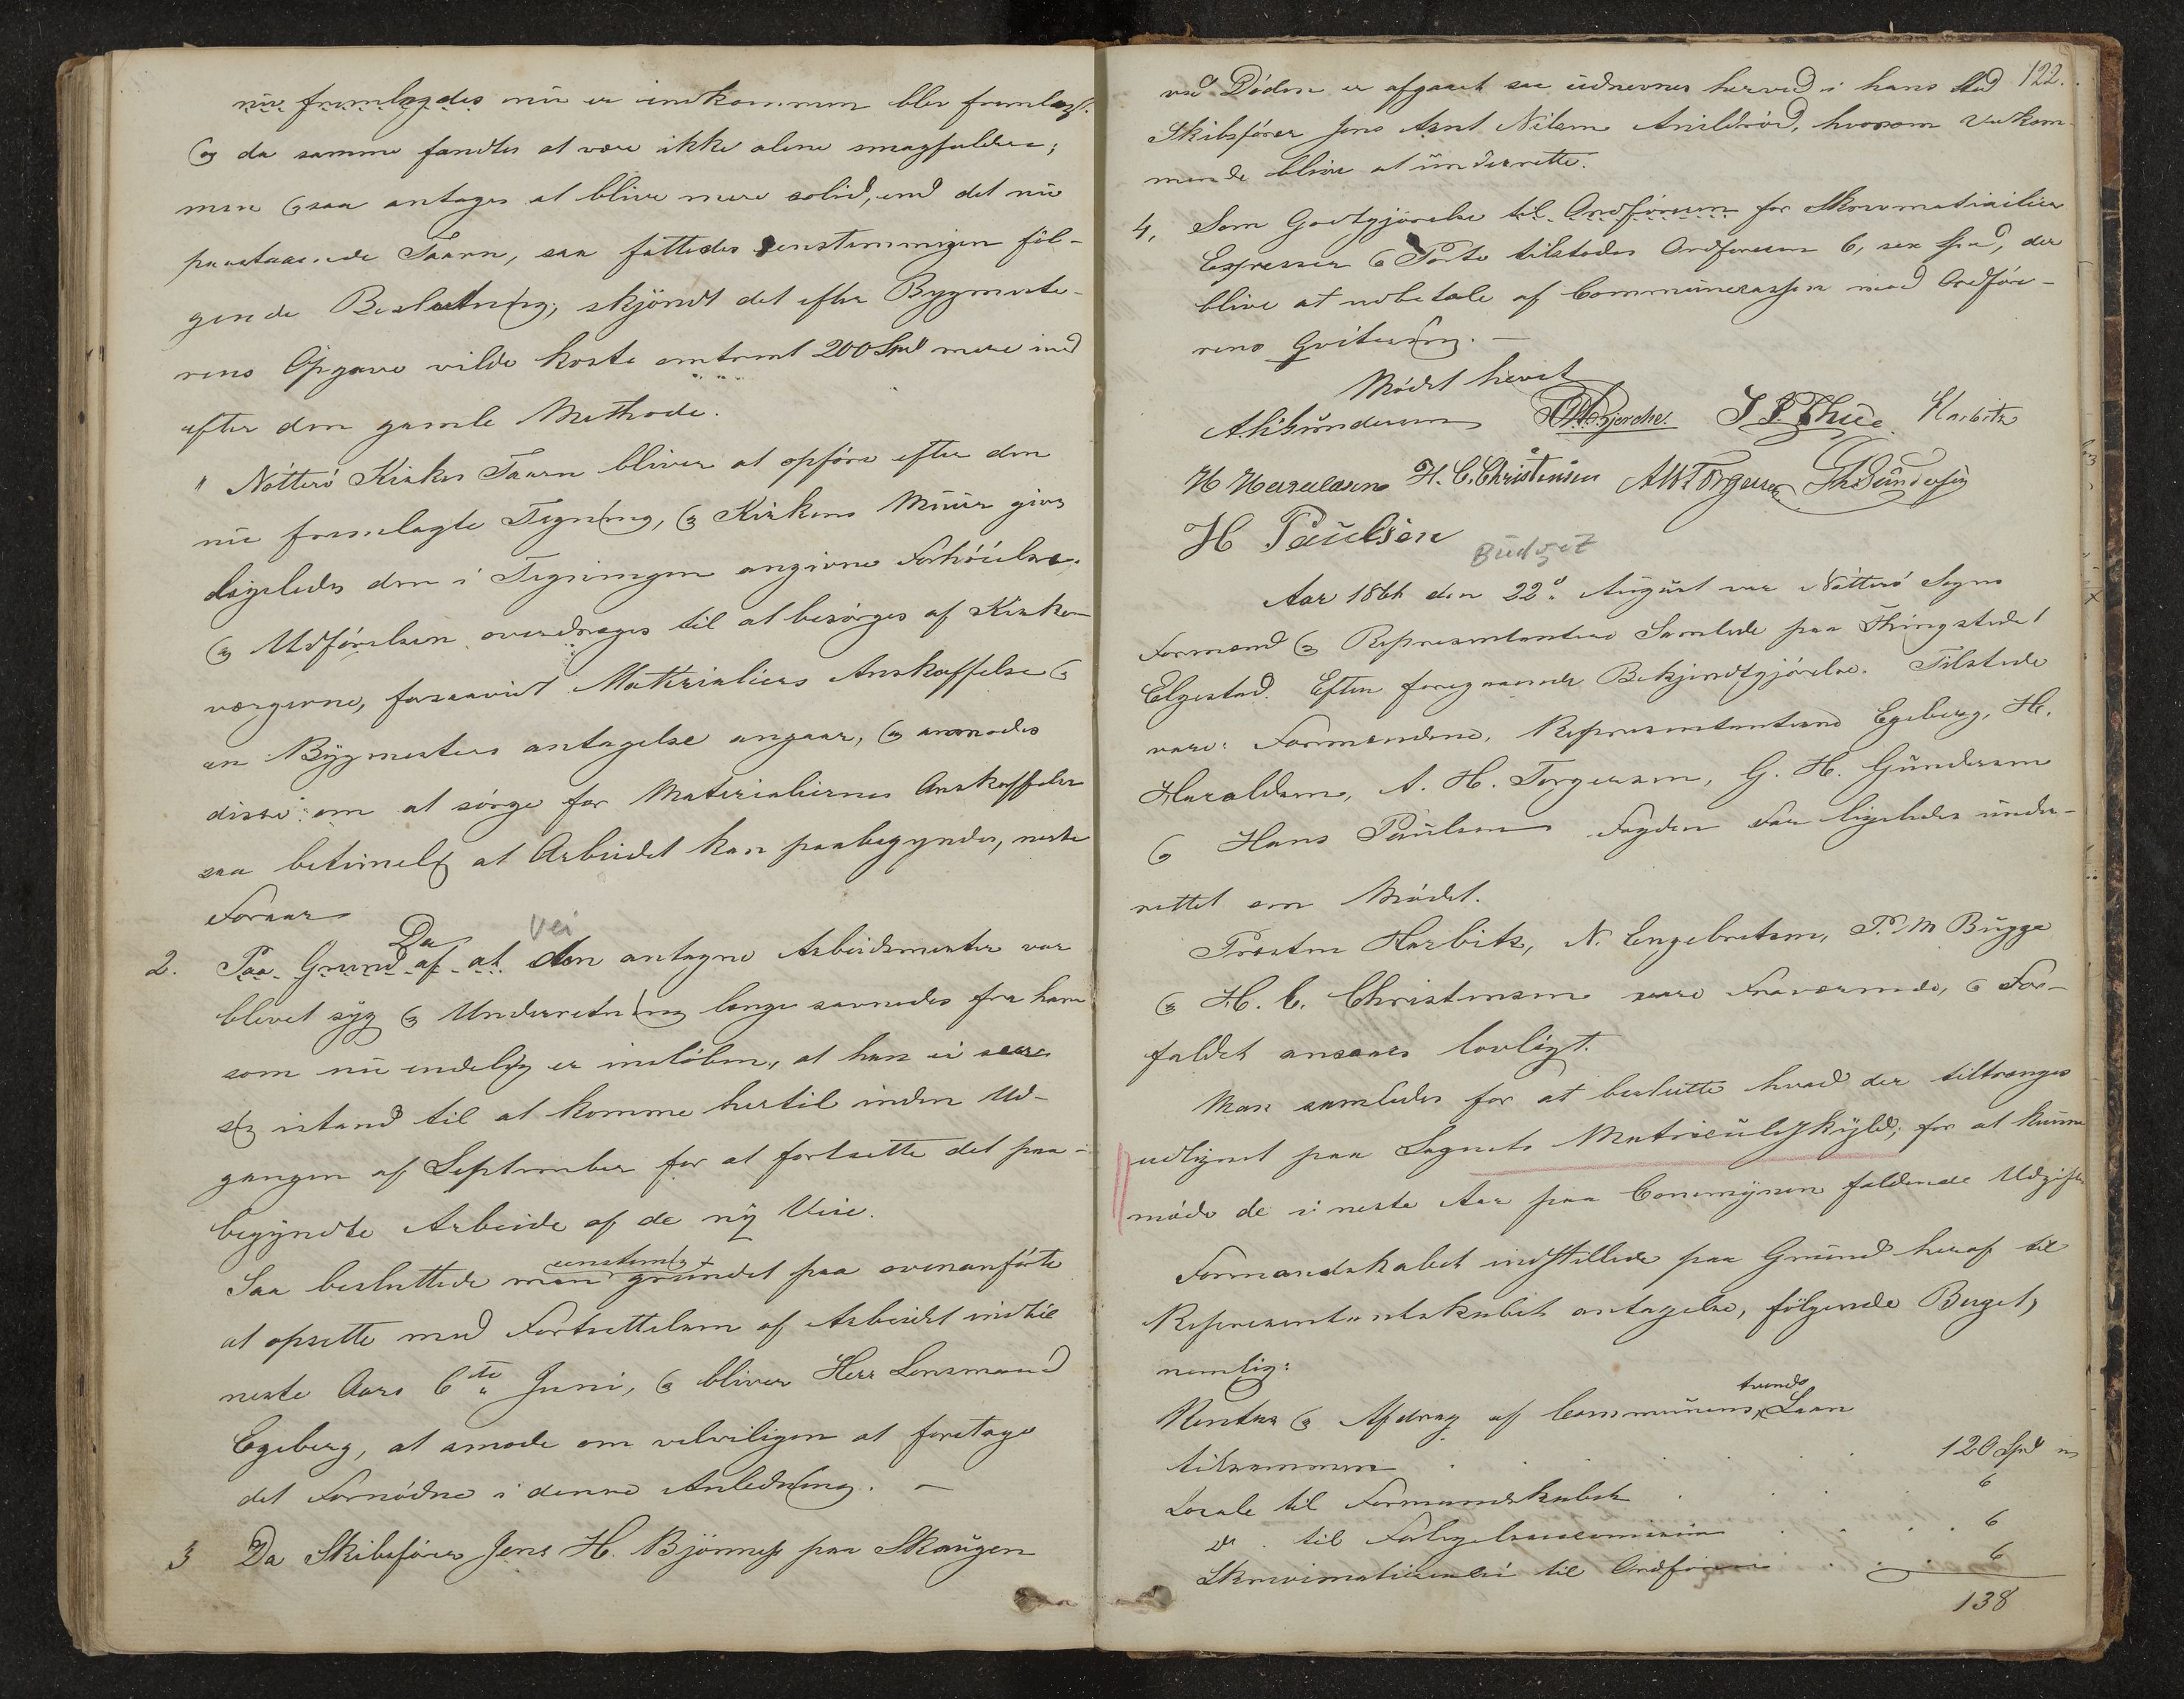 nu fremlagdes nu er indkommen blev fremlagt.
og da samme fandtes at være ikke alene smagfuldere;
men ogsaa antages at blive mere solid, end det nu
paastaaende Taarn, saa fattedes eenstemmigen föl-
gende Beslutning; skjöndt det efter Bygmeste-
rens Opgave vilde koste omtrent 200 Spd mere end
efter den gamle Methode.
" Nötterö Kirkes Taarn bliver at opföre efter den
nu foreslagte Tegning, og Kirkens Muur gives
ligeledes den i Tegningen angivne Forhöielse.
og Udförelsen overdrages til at besörges af Kirke-
vergerne, forsaavidt Matterialiers Anskaffelse og
en Bygmesters antagelse angaar, og anmodes
disse om at sörge for Materialiernes Anskaffelse
saa betimelig at Arbeidet kan paabegyndes, neste
Foraar
Vei
2. Paa Grund af at Da den antagne Arbeidsmester var
blevet syg og Underretning længe savnedes fra ham
som nu endelig er indlöben, at han ei seer
sig istand til at komme hertil inden Ud-
gangen af September for at fortsette det paa-
begyndte Arbeide af de ny Veie.
Saa besluttede man eenstemig grundet paa ovenanförte
at opsette med Fortsettelsen af Arbeidet indtil
neste Aars 6te Juni, og bliver Herr Lensmand
Egeberg, at amode om velviligen at foretage
det Fornödne i denne Anledning. —
3 Da Skibsförer Jens H. Björnness paa Skaugen
122.
ved Döden er afgaaet saa udnevnes herved i hans Sted
Skibsförer Jens Arnt Nilsen Arildsröd, hvorom Vedkom-
mende blive at underrette.
4, Som Godtgjörelse til Ordföreren for Skrivmatrialier
Expresser og Porto tilstodes Ordföreren 6, sex Spd, der
blive at udbetale af Communekassen mod Ordföre-
rens Qvitering. —
Mödet hævet
A. H. Gundersen Bjerche. J P Thue. Harbitz
H Haraldsen H. C. Christensen A H Torgersen G H Gundersen
H Paulsen
Budget
Aar 1866 den 22d August var Nötterö Sogns
Formænd og Representantere Samlede paa Thingstedet
Elgestad. Efter foregaaende Bekjendtgjörelse. Tilstede
vare: Formændene, Representanterne Egeberg, H.
Haraldsen, A. H. Torgersen, G. H. Gundersen
og Hans Paulsen Fogden Var ligeledes under-
rettet om Mödet.
Presten Harbitz, N. Engebretsen, P. M Bugge
og H. C. Christensen vare Fraværende, og For-
faldet ansaaes lovligt.
Man samledes for at beslutte hvad der tiltrænges
udlignet paa Sognets Matriculskyld; for at kunne
möde de i neste Aar paa Communen faldende Udgifter
Formandskabet indstillede paa Grund heraf til
Representantskabets antagelse, fölgende Buget,
nemlig:
Renter og Afdrag af Communens tvende Laan
tilsammen . . . . . 120 Spd
Locale til Formandskabet . . . 6
do. til Forligelsescommision . . . 6
Skrivematrialier til Ordföreren . . . 6
138